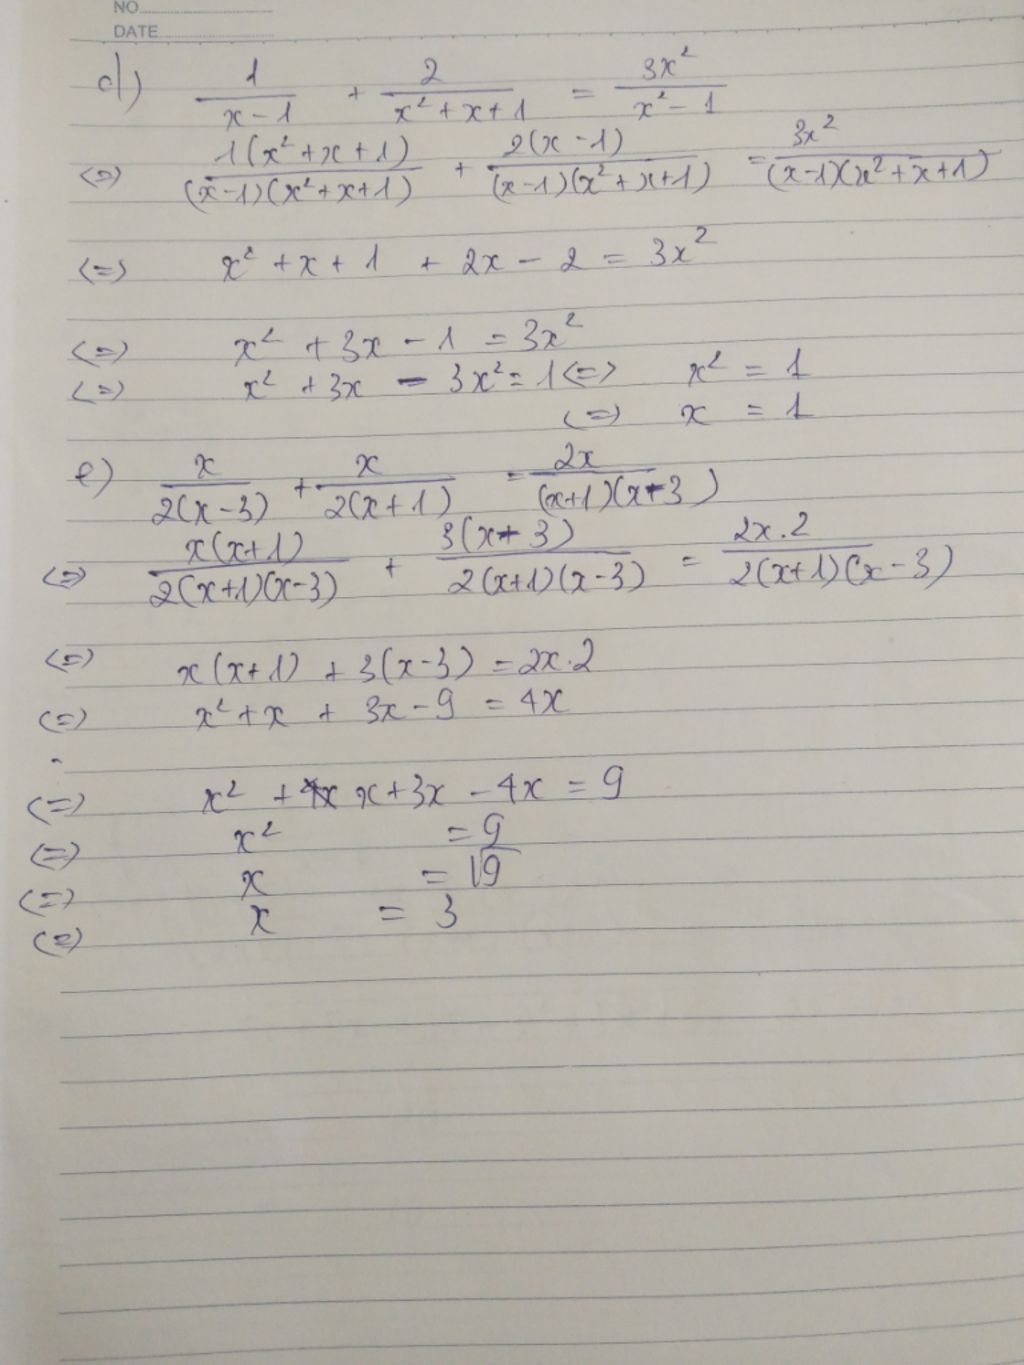 NO.
DATE
d) 1/(x-1) + 2/(x²+x+1) = 3x²/(x²-1)
(=) 1(x²+x+1)/((x-1)(x²+x+1)) + 2(x-1)/((x-1)(x²+x+1)) = 3x²/((x-1)(x²+x+1))
(=) x²+x+1 + 2x-2 = 3x²
(=) x² + 3x - 1 = 3x²
(=) x² + 3x - 3x² = 1 (=) x² = 1
(=) x = 1
e) x/(2(x-3)) + x/(2(x+1)) = 2x/((x+1)(x-3))
(=) x(x+1)/(2(x+1)(x-3)) + 3(x-3)/(2(x+1)(x-3)) = 2x.2/(2(x+1)(x-3))
(=) x(x+1) + 3(x-3) = 2x.2
(=) x²+x + 3x-9 = 4x
(=) x² + x+3x - 4x = 9
(=) x² = 9
(=) x = √9
(=) x = 3